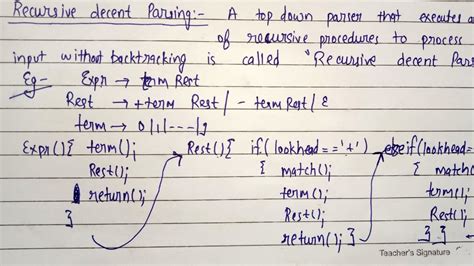 Recursive decent Parsing:- A top down parser that executes a
of recursive procedures to process
input without backtracking is called "Recursive decent Pars
Eg- Expr → term Rest
Rest → +term Rest / - term Rest / ε
term → 0/1/---/9
Expr() { term();
Rest();
return();
}
Rest() { if (lookhead == '+')
{ match();
term();
Rest();
return(); }
else if (lookhead =
{ match(
term();
Rest();
} }
Teacher's Signature